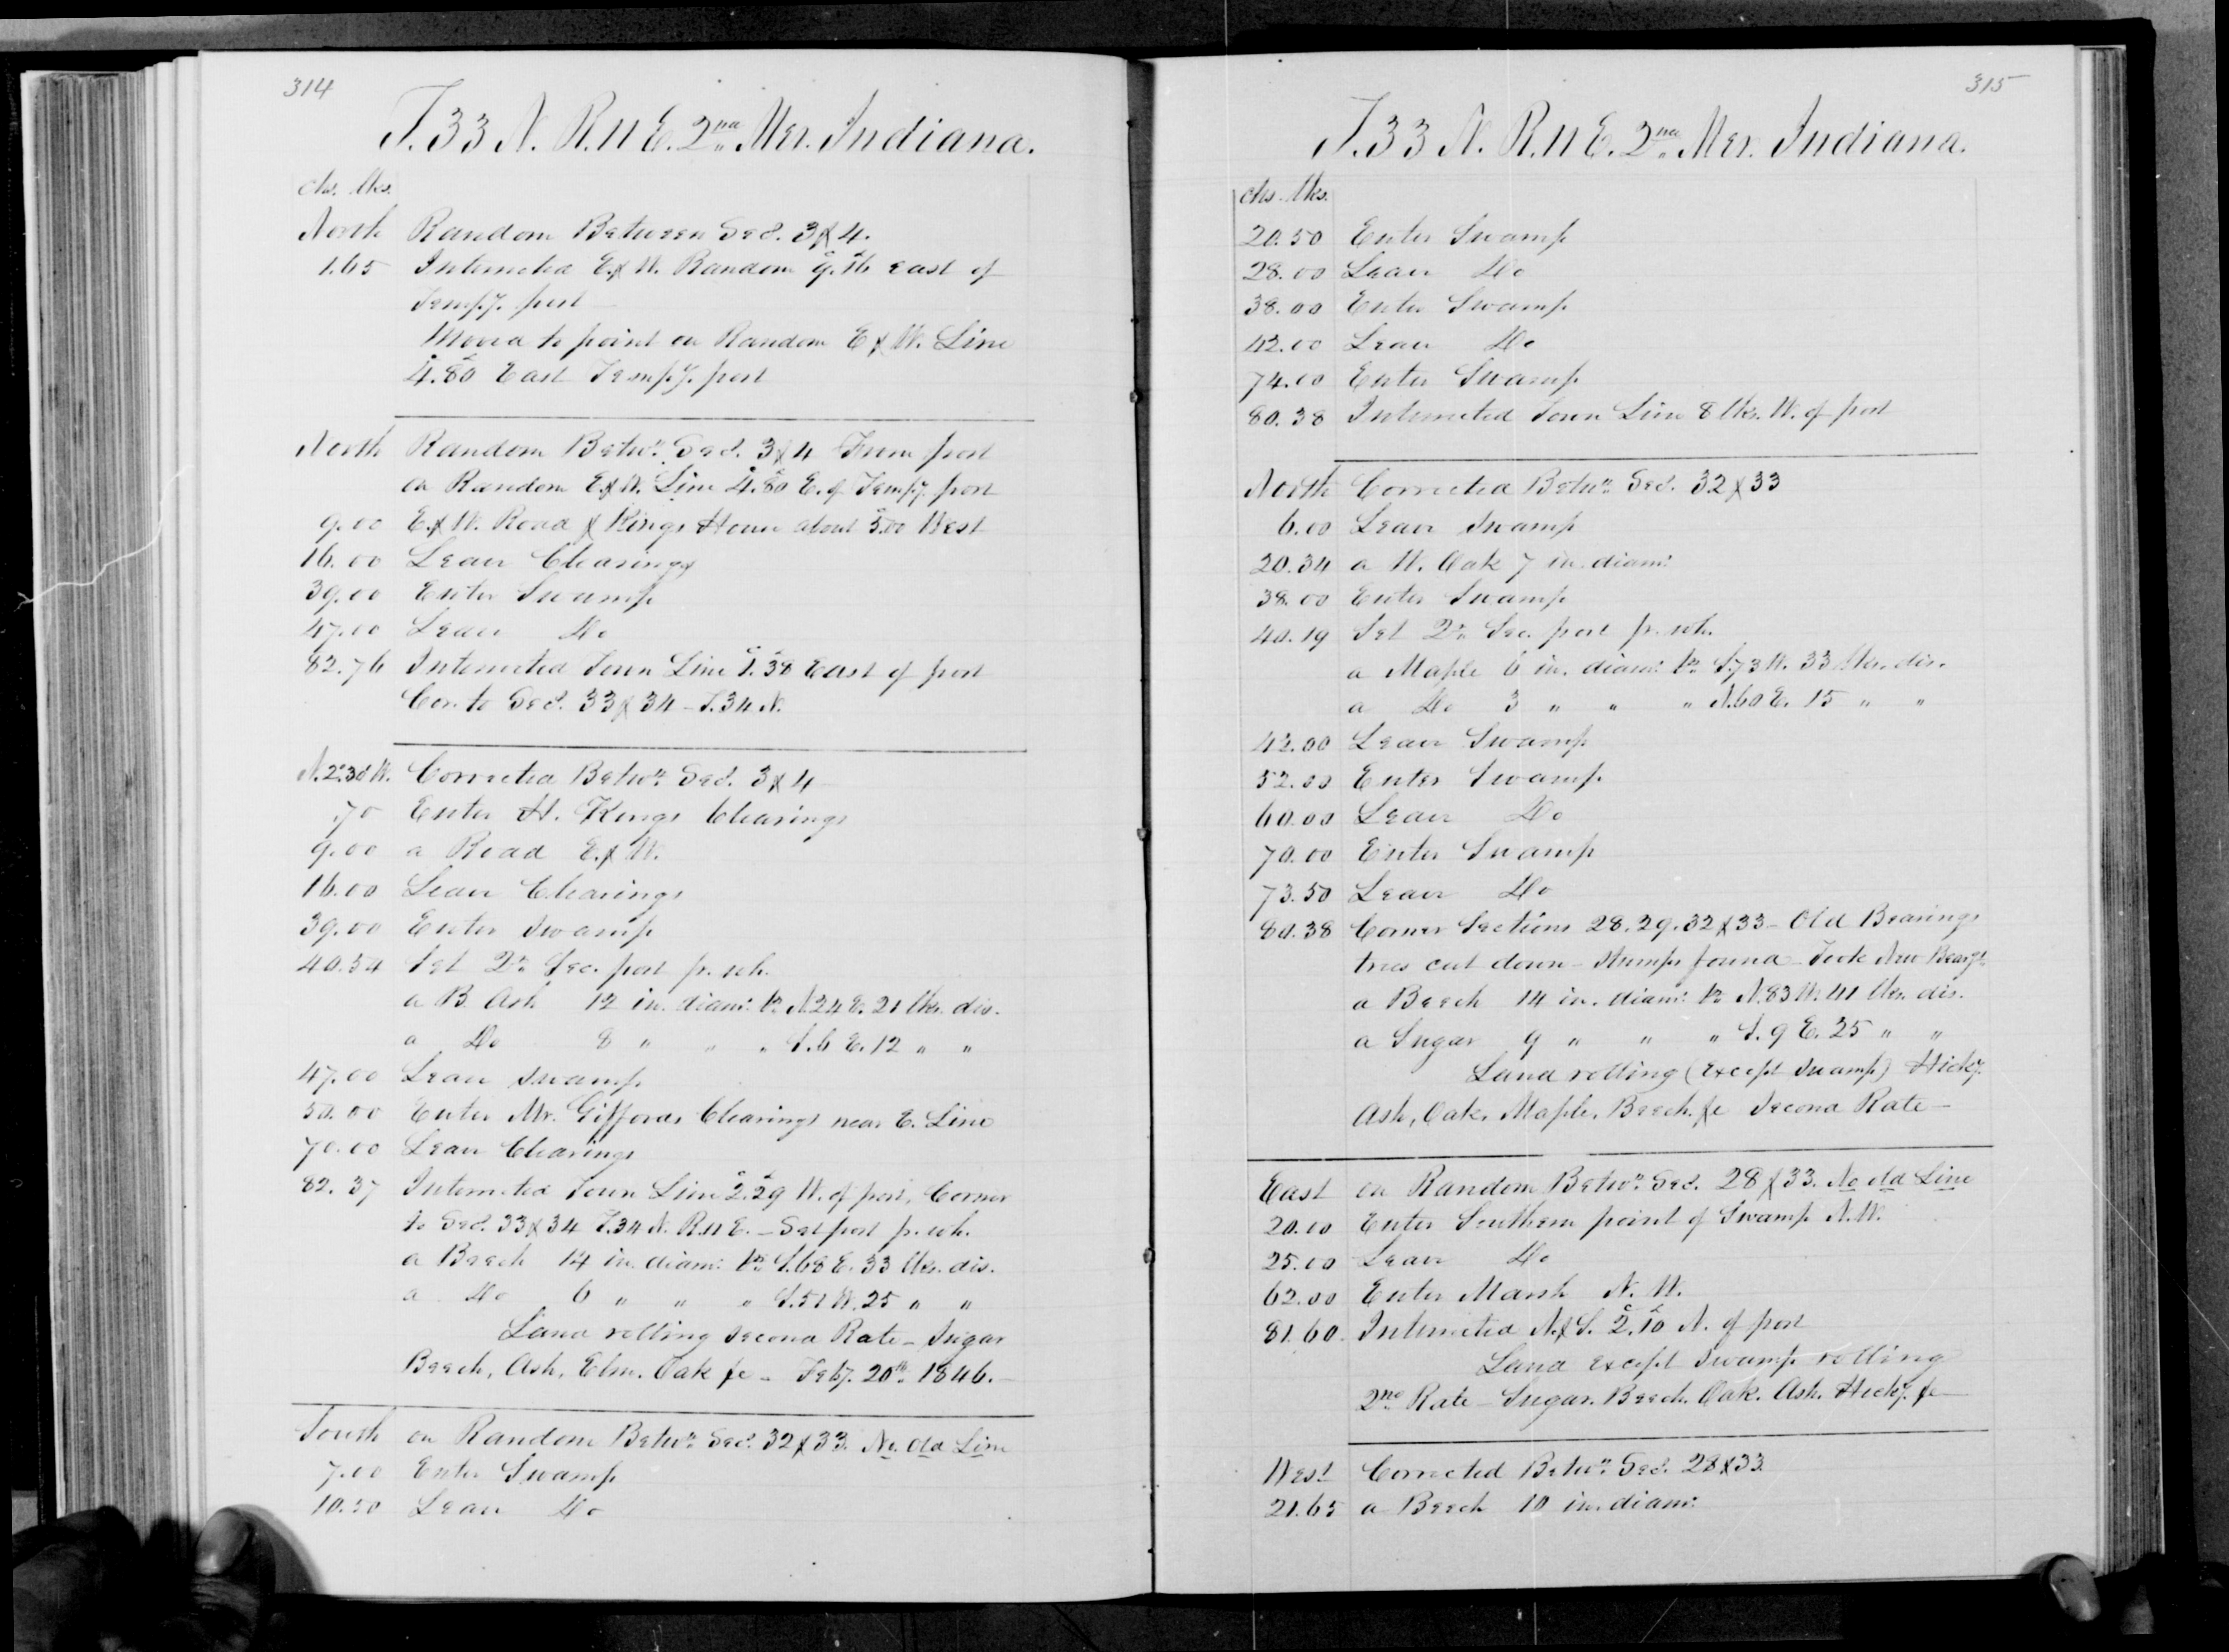 314
T. 33 N. R. 11 E. 2nd Mer. Indiana.
chs. lks.
North Random Between Secs. 3 & 4.
1.65 Intersected E. & W. Random 9.16 east of
Tempy. post
Moved to point on Random E & W. Line
4.80 East Tempy. post
North Random Betwn. Secs. 3 & 4 From post
on Random E. & W. Line 4.80 E. of Tempy. post
9.00 E. & W. Road & Kings House about 5.00 West
16.00 Leave Clearings
39.00 Enter Swamp
47.00 Leave Do
82.76 Intersected Town Line 1.38 East of post
Cor. to Secs. 33 & 34 - T. 34 N.
N. 2°30 W. Corrected Betwn. Secs. 3 & 4
70 Enter H. Kings Clearings
9.00 a Road E. & W.
16.00 Leave Clearings
39.00 Enter Swamp
40.54 Set Qr. Sec. post fr. wh.
a B. Ash 12 in. diam. br. N. 24 E. 21 lks. dis.
a Do 8 " " " S. 6 E. 12 " "
47.00 Leave Swamp
50.00 Enter Mr. Giffords Clearings near E. Line
70.00 Leave Clearings
82.37 Intersected Town Line 2.29 W. of post, Corner
to Secs. 33 & 34 T. 34 N. R. 11 E. - Set post fr. wh.
a Beech 14 in. diam. br. S. 68 E. 33 lks. dis.
a Do 6 " " " S. 51 W. 25 " "
Land rolling Second Rate - Sugar
Beech, Ash, Elm. Oak &c - Feby. 20th. 1846. -
South on Random Betwn. Secs. 32 & 33. No Old Line
7.00 Enter Swamp
10.50 Leave Do
315
T. 33 N. R. 11 E. 2nd Mer. Indiana.
chs. lks.
20.50 Enter Swamp
28.00 Leave Do
38.00 Enter Swamp
42.00 Leave Do
74.00 Enter Swamp
80.38 Intersected Town Line 8 lks. W. of post
North Corrected Betwn. Secs. 32 & 33
6.00 Leave Swamp
20.34 a W. Oak 7 in. diam.
38.00 Enter Swamp
40.19 Set Qr. Sec. post fr. wh.
a Maple 6 in. diam. br. S. 73 W. 33 lks. dis.
a Do 3 " " " N. 60 E. 15 " "
42.00 Leave Swamp
52.00 Enter Swamp
60.00 Leave Do
70.00 Enter Swamp
73.50 Leave Do
80.38 Corner Sections 28. 29. 32 & 33 - Old Bearings
trees cut down - stumps found - Took New Beargs.
a Beech 14 in. diam. br. N. 83 W. 41 lks. dis.
a Sugar 9 " " " S. 9 E. 25 " "
Land rolling (Except Swamp) Hicky.
Ash, Oak, Maple, Beech &c Second Rate -
East on Random Betwn. Secs. 28 & 33. No Old Line
20.00 Enter Southern point of Swamp N. W.
25.00 Leave Do
62.00 Enter Marsh N. W.
81.60 Intersected N. & S. 2.10 N. of post
Land except Swamp rolling
2nd Rate - Sugar. Beech. Oak. Ash. Hicky. &c -
West Corrected Betwn. Secs. 28 & 33
21.65 a Beech 10 in. diam.